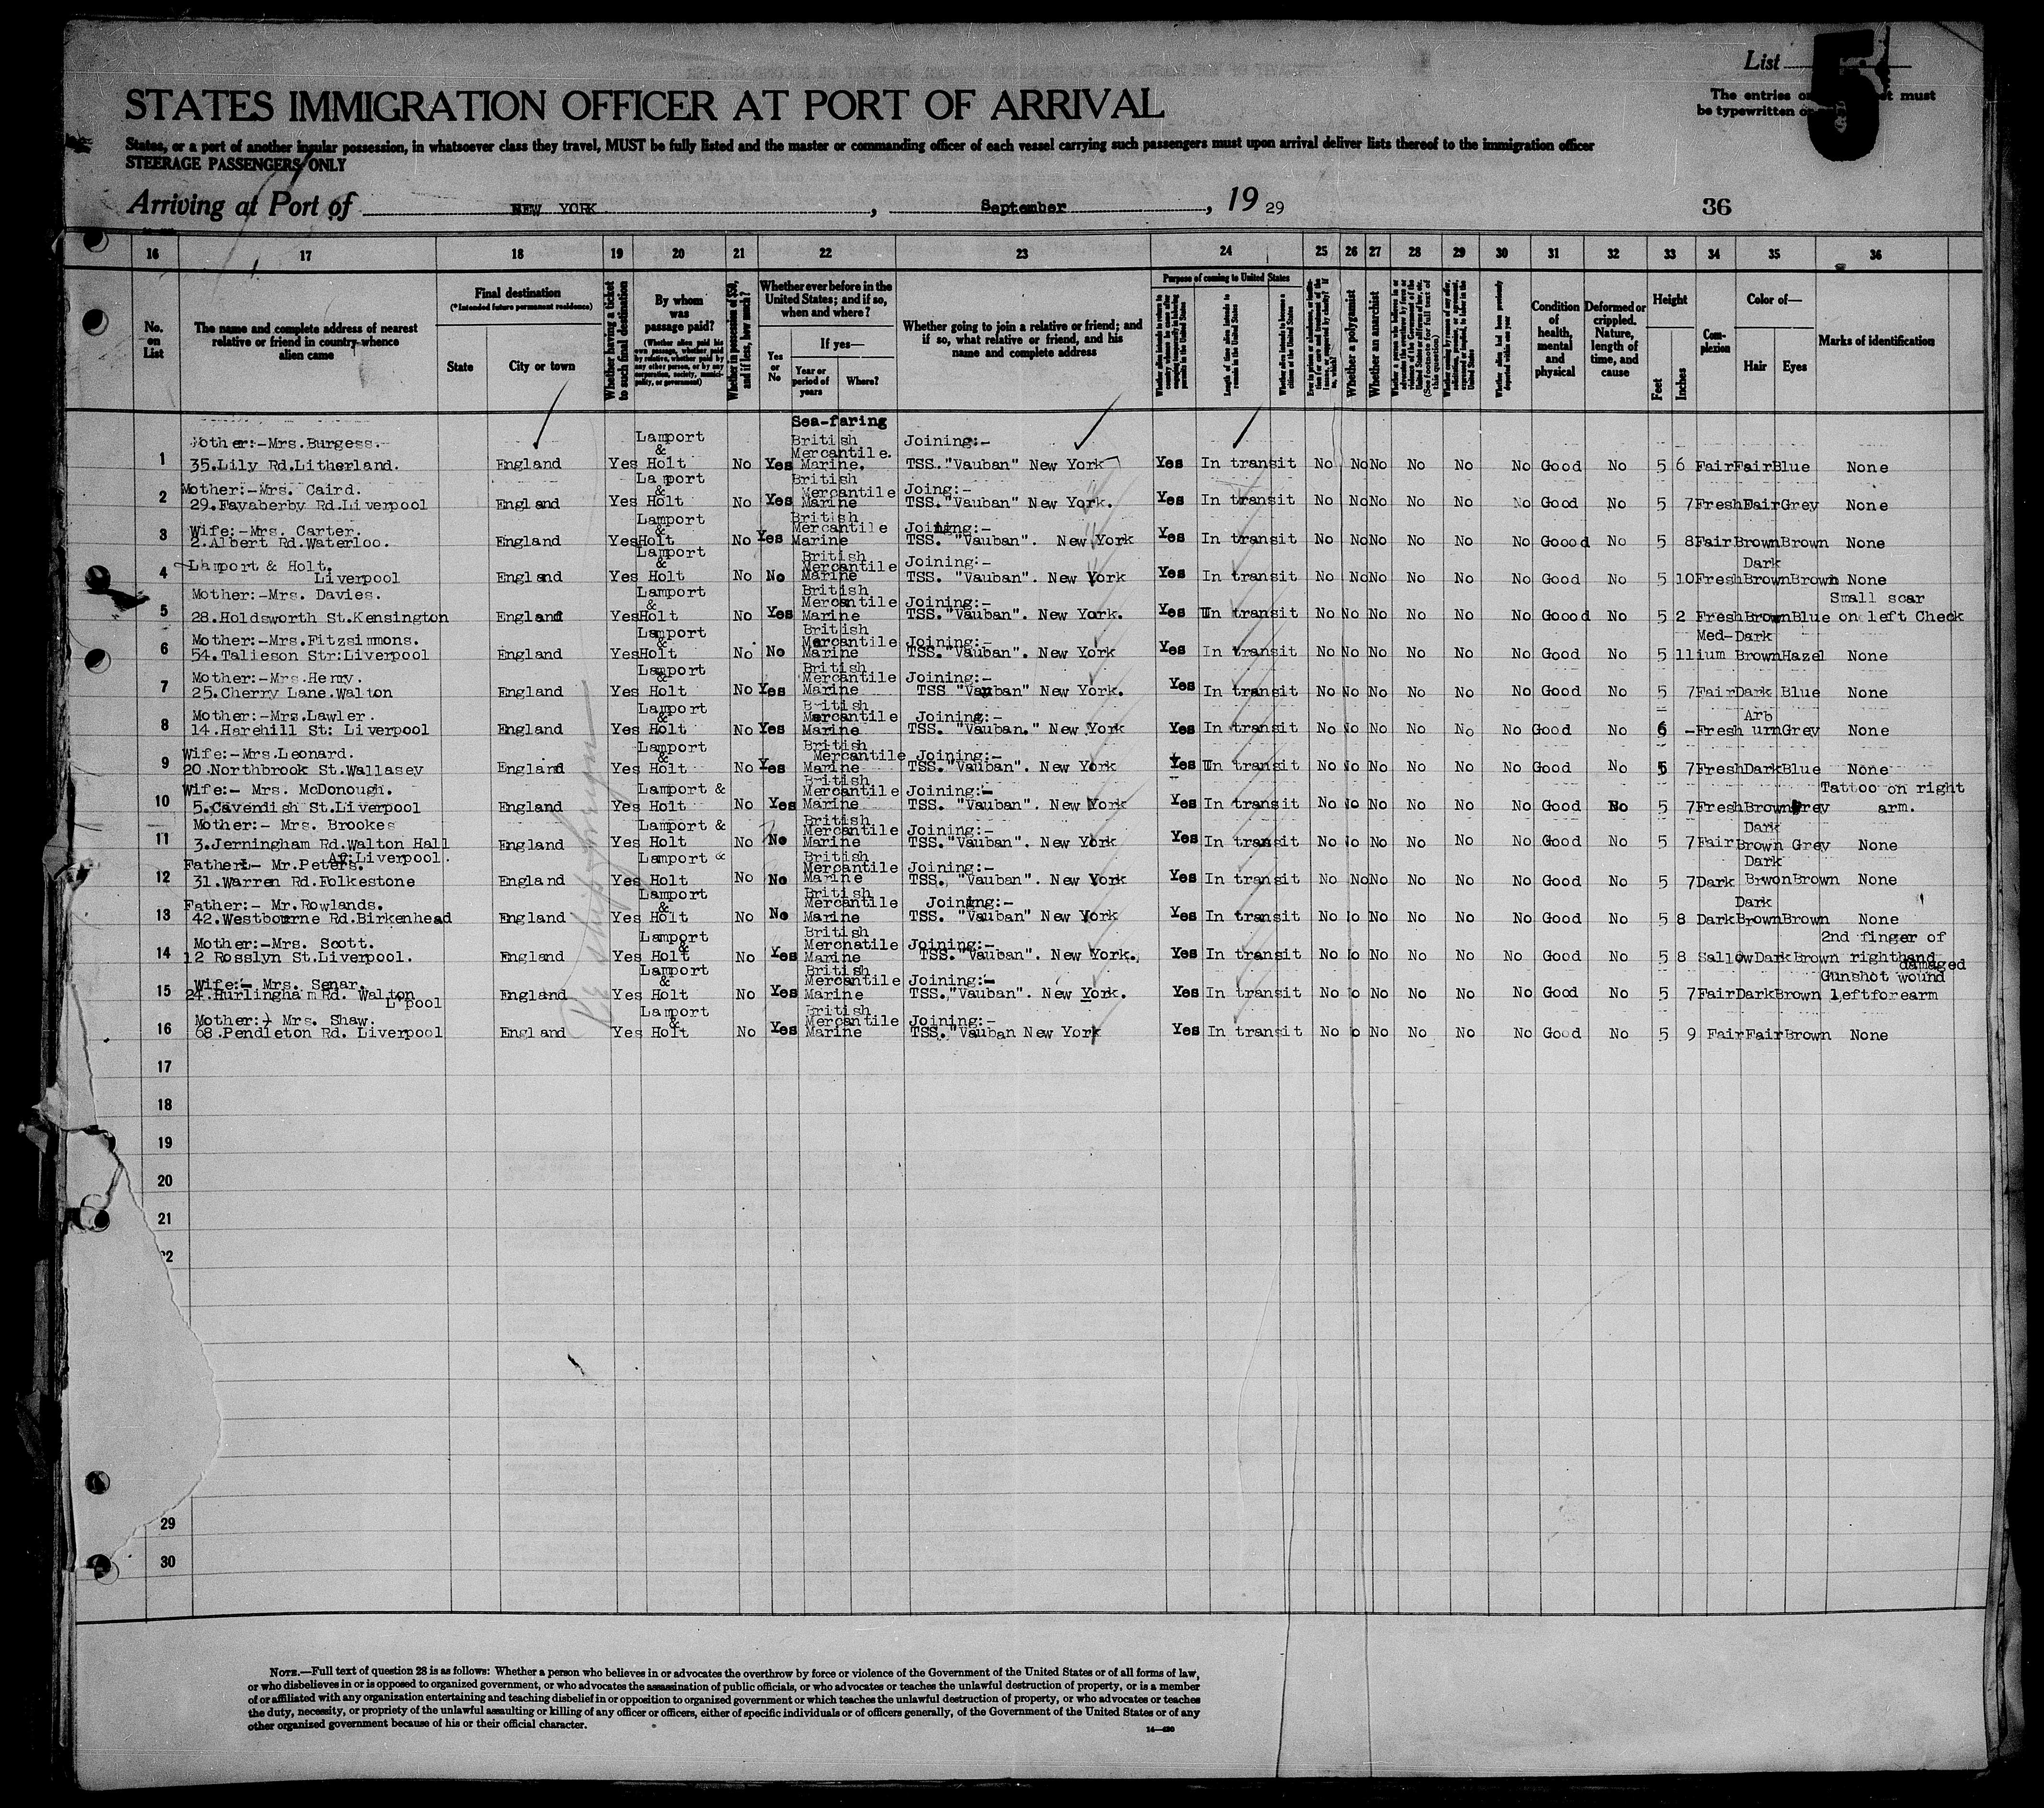 List
5
The entries on must
be typewritten or
STATES IMMIGRATION OFFICER AT PORT OF ARRIVAL
States, or a port of another insular possession, in whatsoever class they travel, MUST be fully listed and the master or commanding officer of each vessel carrying such passengers must upon arrival deliver lists thereof to the immigration officer
STEERAGE PASSENGERS ONLY
Arriving at Port of NEW YORK, September, 19 29
36
16 17 18 19 20 21 22 23 24 25 26 27 28 29 30 31 32 33 34 35 36
No. on List
The name and complete address of nearest relative or friend in country whence alien came
Final destination
(*Intended future permanent residence)
State
City or town
Whether having a ticket to such final destination
By whom was passage paid?
(Whether alien paid his own passage, whether paid by relative, whether paid by any other person, or by any corporation, society, municipality, or government)
Whether in possession of $50, and if less, how much?
Whether ever before in the United States; and if so, when and where?
Yes or No
If yes—
Year or period of years
Where?
Whether going to join a relative or friend; and if so, what relative or friend, and his name and complete address
Purpose of coming to United States
Length of time alien intends to remain in the United States
Whether alien intends to become a citizen of the United States
Whether a polygamist
Whether an anarchist
Whether alien had been previously deported within one year
Condition of health, mental and physical
Deformed or crippled. Nature, length of time, and cause
Height
Feet
Inches
Complexion
Color of—
Hair
Eyes
Marks of identification
Sea-faring
1 Mother:-Mrs.Burgess. 35.Lily Rd.Litherland. England Yes Lamport & Holt No Yes British Mercantile. Marine. Joining:- TSS."Vauban" New York Yes In transit No No No No No No Good No 5 6 Fair Fair Blue None
2 Mother:-Mrs. Caird. 29.Fayaberby Rd.Liverpool England Yes Lamport & Holt No Yes British Mercantile Marine Joing:- TSS."Vauban" New York. Yes In transit No No No No No No Good No 5 7 Fresh Fair Grey None
3 Wife:-Mrs. Carter. 2.Albert Rd.Waterloo. England Yes Lamport & Holt No Yes British Mercantile Marine Joining:- TSS. "Vauban". New York Yes In transit No No No No No No Goood No 5 8 Fair Brown Brown None
4 Lamport & Holt. Liverpool England Yes Lamport & Holt No No British Mercantile Marine Joining:- TSS. "Vauban". New York Yes In transit No No No No No No Good No 5 10 Fresh Dark Brown Brown None
5 Mother:-Mrs. Davies. 28.Holdsworth St.Kensington England Yes Lamport & Holt No Yes British Mercantile Marine Joining:- TSS."Vauban". New York. Yes In transit No No No No No No Goood No 5 2 Fresh Brown Blue Small scar on left Check
6 Mother:-Mrs.Fitzsimmons. 54.Talieson Str:Liverpool England Yes Lamport & Holt No No British Mercantile Marine Joining:- TSS."Vauban". New York Yes In transit No No No No No No Good No 5 11 Med-ium Dark Brown Hazel None
7 Mother:-Mrs.Henry. 25.Cherry Lane.Walton England Yes Lamport & Holt No Yes British Mercantile Marine Joining:- TSS "Vauban" New York. Yes In transit No No No No No No Good No 5 7 Fair Dark Blue None
8 Mother:-Mrs.Lawler. 14.Harehill St: Liverpool England Yes Lamport & Holt No Yes British Mercantile Marine Joining:- TSS. "Vauban." New York Yes In transit No No No No No No Good No 6 - Fresh Arb urn Grey None
9 Wife:-Mrs.Leonard. 20.Northbrook St.Wallasey England Yes Lamport & Holt No Yes British Mercantile Marine Joining:- TSS."Vauban". New York Yes In transit No No No No No No Good No 5 7 Fresh Dark Blue None
10 Wife:- Mrs. McDonough. 5.Cavendish St.Liverpool England Yes Lamport & Holt No Yes British Mercantile Marine Joining:- TSS. "Vauban". New York Yes In transit No No No No No No Good No 5 7 Fresh Brown Grey Tattoo on right arm.
11 Mother:- Mrs. Brookes 3.Jerningham Rd.Walton Hall Av:Liverpool. England Yes Lamport & Holt No No British Mercantile Marine Joining:- TSS."Vauban". New York Yes In transit No No No No No No Good No 5 7 Fair Dark Brown Grey None
12 Father:- Mr.Peters. 31.Warren Rd.Folkestone England Yes Lamport & Holt No No British Mercantile Marine Joining:- TSS. "Vauban". New York Yes In transit No No No No No No Good No 5 7 Dark Dark Brwon Brown None
13 Father:- Mr.Rowlands. 42.Westbourne Rd.Birkenhead England Yes Lamport & Holt No No British Mercantile Marine Joining:- TSS. "Vauban" New York Yes In transit No No No No No No Good No 5 8 Dark Dark Brown Brown None
14 Mother:-Mrs. Scott. 12 Rosslyn St.Liverpool. England Yes Lamport & Holt No Yes British Merchatile Marine Joining:- TSS."Vauban". New York. Yes In transit No No No No No No Good No 5 8 Sallow Dark Brown 2nd finger of right hand damaged
15 Wife:- Mrs. Senar. 24.Hurlingham Rd. Walton L'pool England Yes Lamport & Holt No Yes British Mercantile Marine Joining:- TSS."Vauban". New York. Yes In transit No No No No No No Good No 5 7 Fair Dark Brown Gunshot wound leftforearm
16 Mother:- Mrs. Shaw. 68.Pendleton Rd. Liverpool England Yes Lamport & Holt No Yes British Mercantile Marine Joining:- TSS."Vauban New York Yes In transit No No No No No No Good No 5 9 Fair Fair Brown None
17
18
19
20
21
22
29
30
NOTE.—Full text of question 28 is as follows: Whether a person who believes in or advocates the overthrow by force or violence of the Government of the United States or of all forms of law,
or who disbelieves in or is opposed to organized government, or who advocates the assassination of public officials, or who advocates or teaches the unlawful destruction of property, or is a member
of or affiliated with any organization entertaining and teaching disbelief in or opposition to organized government or which teaches the unlawful destruction of property, or who advocates or teaches
the duty, necessity, or propriety of the unlawful assaulting or killing of any officer or officers, either of specific individuals or of officers generally, of the Government of the United States or of any
other organized government because of his or their official character.
14—430